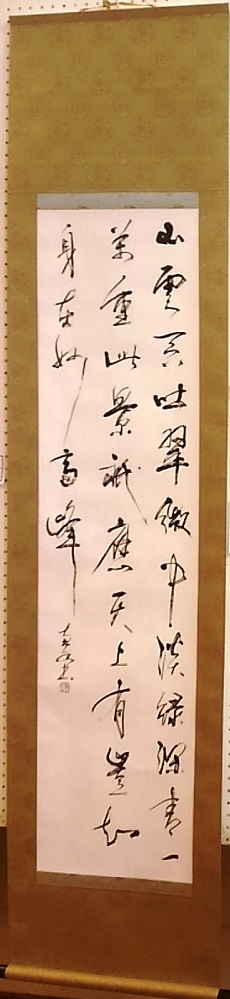 山雲吞吐翠微中淡緑深青一
萬重此景祇應天上有豈知
身在妙高峰